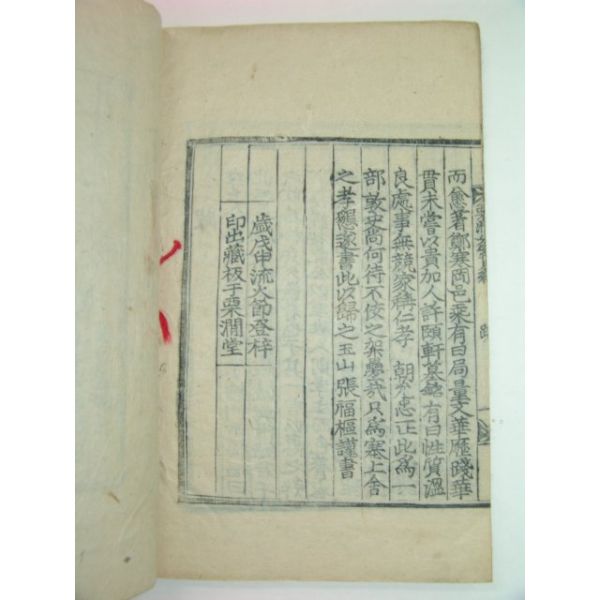 而愈著鄭寒岡邑乘有曰局量文華歷踐華
貫未嘗以貴加人許頤軒墓銘有曰性質溫
良處事無競家稱仁孝朝家忠正此爲一
部敦史尙何待不佞之架疊哉只爲塞上舍
之孝懇遂書此以歸之玉山張福樞謹書
歲戊申流火節登梓
印出藏板于栗澗堂